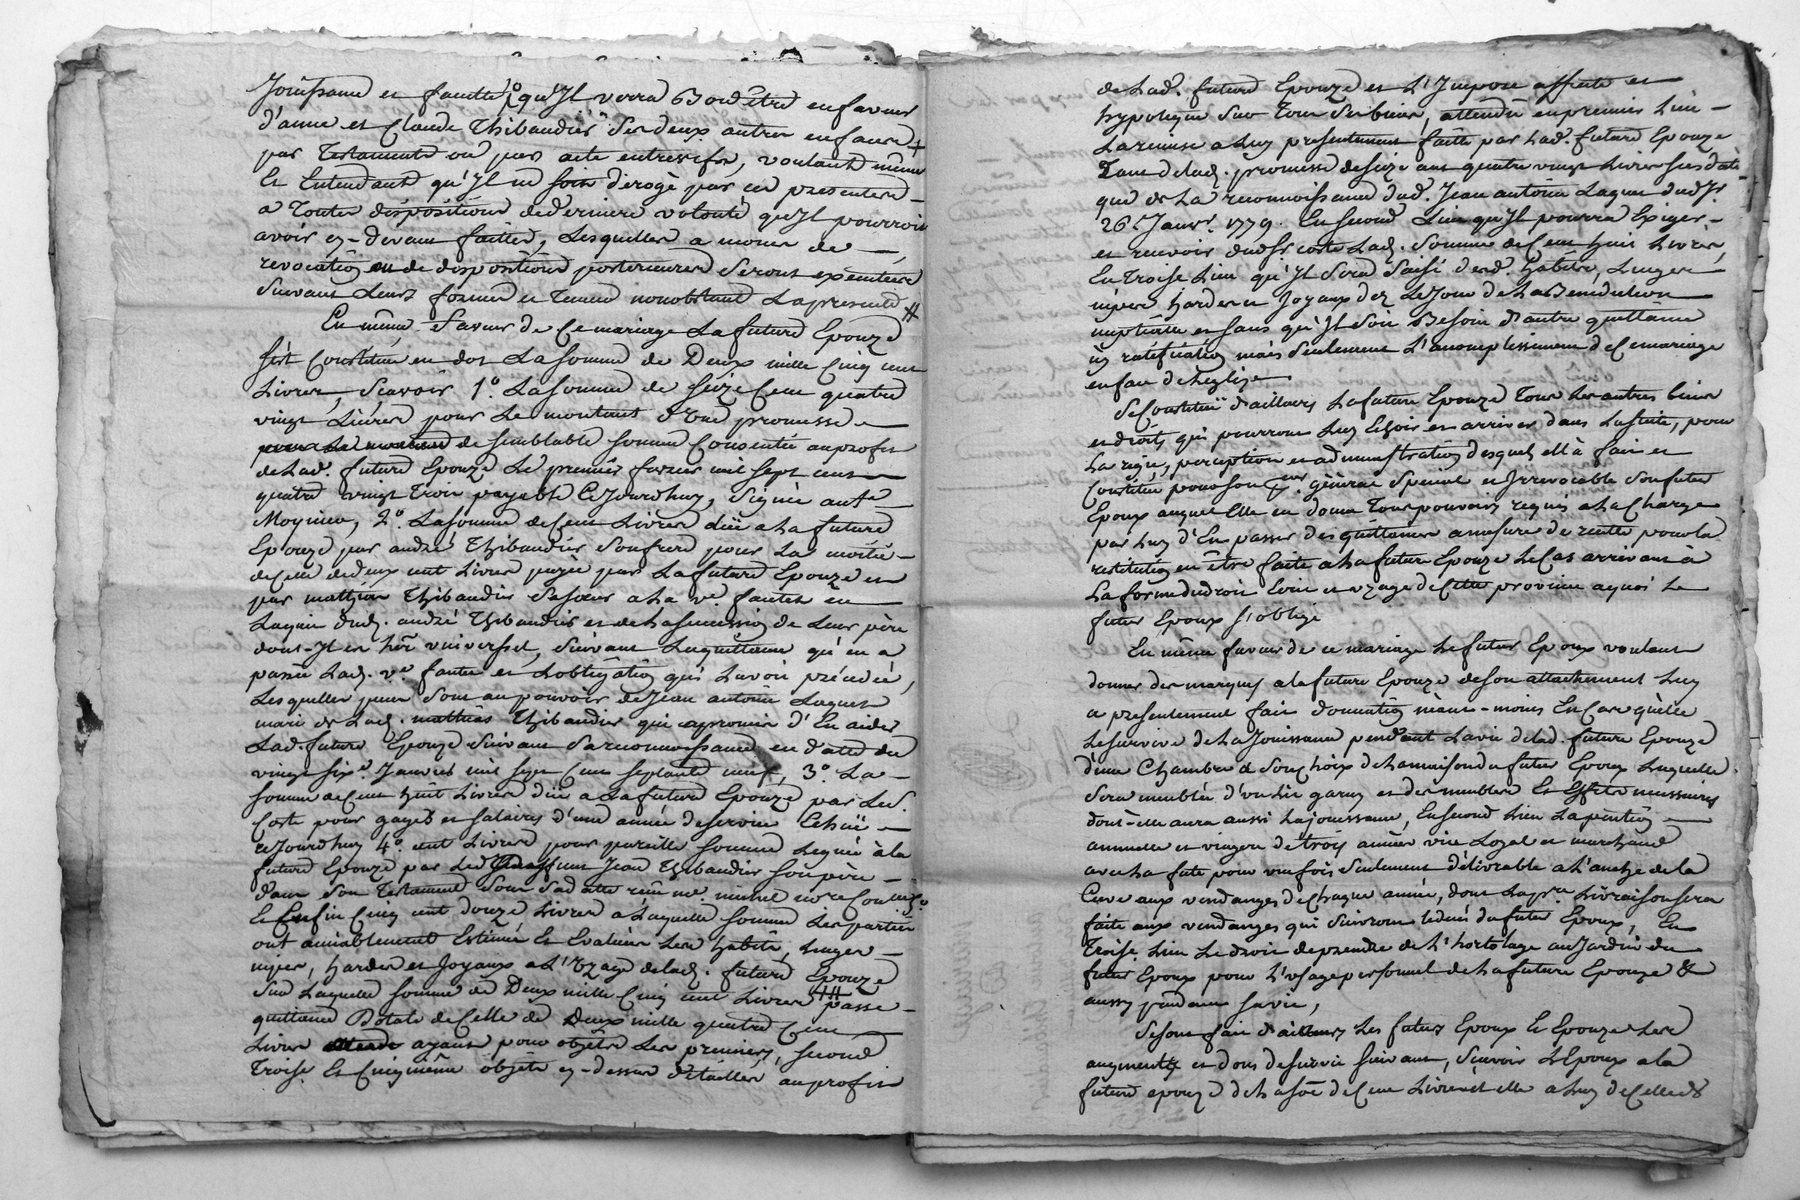 Jouissance et faculté qu'Il verra Bon être en faveur
d'anne et Claude Thibaudier Ses deux autres enfans
par Testament ou par acte entrevifs, voulant même
Et Entendant qu'Il ne soit dérogé par ces presentes
a Toutes dispositions de derniere volonté qu'Il pourroit
avoir cy-devant faittes, Lesquelles a moins de
revocation ou de dispositions posterieures Seront executées
Suivant Leurs forme et Teneur nonobstant Lapresente #
En même faveur de Cemariage La future Epouze
s'est Constituée en dot La somme de Deux mille Cinq cent
Livres, Scavoir 1°. La somme de Seize Cent quatre
vingt Livres pour Le montant d'une promesse
de semblable somme Consentie auprofit
de Lad. future Epouze Le premier fevrier mil sept cent
quatre vingt Trois payable Cejourdhuy, Signée
Moynieu, 2°. La somme de Cent Livres düe a La future
Epouze par andré Thibaudier Son frere pour La moitié
de Celle de deux cent Livres payée par La future Epouze et
par Thibaudier Sa sœur a La ve. fautet en
Lacquit dud. andré Thibaudier et de La succession de Leur père
dont Il est hér universel, Suivant La quittance qu'en a
passée Lad. ve. et L'obligation qui L'avoit précédée,
Lesquelles pieces Sont au pouvoir de Jean antoine Laquet
mari de Lad. Thibaudier qui a promis d'En aider
Lad. future Epouze Suivant Sa reconnoissance en date du
vingt six Janvier mil sept Cent septante neuf, 3°. La
somme de Cent huit Livres düe a La future Epouze par Led.
Coste pour gages et salaires d'une année de service Echüe
cejourdhuy 4°. cent Livres pour pareille somme Leguée à la
future Epouze par Led. Jean Thibaudier Son père
dans Son Testament Sous Sa datte reçu me. michel
Et Enfin Cinq cent douze Livres a Laquelle somme Les parties
ont amiablement Estimé Et Evalüé Les habits, Linges
nipes, hardes et Joyaux a L'Uzage de Lad. future Epouze
Sur Laquelle somme de Deux mille Cinq cent Livres passe
quittance de Celle de Deux mille quatre Cent
Livres ayant pour objets Les premiers, second
Troise. Et Cinquième objets cy-dessus détaillés au profit
de Lad. future Epouze et L'Impose affecte et
hypoteque Sur Tous Ses biens, attendu en premier Lieu
La remise a Luy presentement faite par Lad. future Epouze
Tant de Lad. promesse de seize cent quatre vingt Livres
que de La reconnoissance dud. Jean antoine Laquet dud. Jr.
26e Janvr. 1779. En second Lieu qu'Il pourra Exiger
et recevoir dud. Sr coste Lad. Somme de Cent huit Livres,
En Troise. Lieu qu'Il Sera Saisi desd. habits, Linges
nipes hardes et Joyaux dez Le Jour de La Benediction
nuptialle et Sans qu'Il soit Besoin d'autre quittance
ny ratification mais Seulement L'accomplissement de Cemariage
en face de L'eglise
Se Constitüe d'ailleurs La future Epouze Tous Les autres biens
et droits qui pourront Luy Echoir et arriver dans La suite, pour
La regie, perception et administration desquels Elle a fait et
Constitué pour son pr. général Special et Irrevocable Son futur
Epoux auquel Elle en donne Tous pouvoirs requis a La Charge
par Luy d'En passer des quittances a mesure de recette pour la
restitution en être faite a La future Epouze Le Cas arrivant à
La forme du droit Ecrit et uzage de Cette province aquoi Le
futur Epoux s'oblige
En même faveur de ce mariage Le futur Epoux voulant
donner des marques a la future Epouze de Son attachement Luy
a presentement fait donnation En Cas qu'elle
Le survive de La Jouissance pendant La vie de Lad. future Epouze
d'une Chambre a Son choix de La maison du futur Epoux Laquelle
Sera meublée d'un Lit garny et des meubles Et Effets necessaires
dont elle aura aussi La jouissance, En second Lieu La pention
annuelle et viagere de trois années vin Loyal et marchand
avec La futte pour une fois Seulement délivrable a L'anche de la
Cuve aux vendanges de Chaque année, dont La pre. Livraison sera
faite aux vendanges qui Suivront Le deces du futur Epoux, En
Troise. Lieu Le droit de prendre de L'hortolage au Jardin du
futur Epoux pour L'usage personnel de La future Epouze &
aussy pendant Sa vie,
Se sont fait d'ailleurs Les futurs Epoux Et Epouze
augments et dons de survie Suivant, Scavoir L'Epoux a la
future epouze de La soe. de Cent Livres et elle a Luy de Celle de